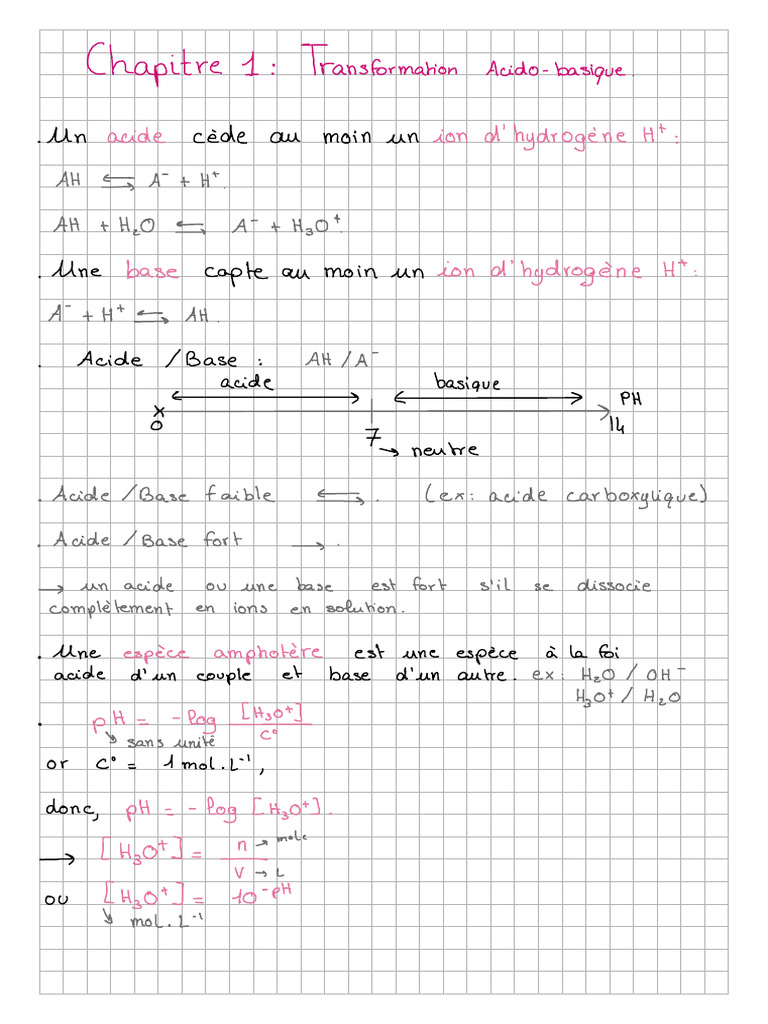 Chapitre 1 : Transformation Acido-basique.
. Un acide cède au moin un ion d'hydrogène H⁺ :
AH ⇆ A⁻ + H⁺.
AH + H₂O ⇆ A⁻ + H₃O⁺.
. Une base capte au moin un ion d'hydrogène H⁺ :
A⁻ + H⁺ ⇆ AH.
. Acide / Base : AH / A⁻
acide basique
PH
0 7 14
→ neutre
. Acide / Base faible ⇆. (ex : acide carboxylique)
. Acide / Base fort →.
→ un acide ou une base est fort s'il se dissocie
complètement en ions en solution.
. Une espèce amphotère est une espèce à la foi
acide d'un couple et base d'un autre. ex : H₂O / OH⁻
H₃O⁺ / H₂O
. pH = -log [H₃O⁺] / C°
↘ sans unité
or C° = 1 mol.L⁻¹,
donc, pH = -log [H₃O⁺].
→ [H₃O⁺] = n → mole
V → L
ou [H₃O⁺] = 10⁻ᵖᴴ
↘ mol.L⁻¹